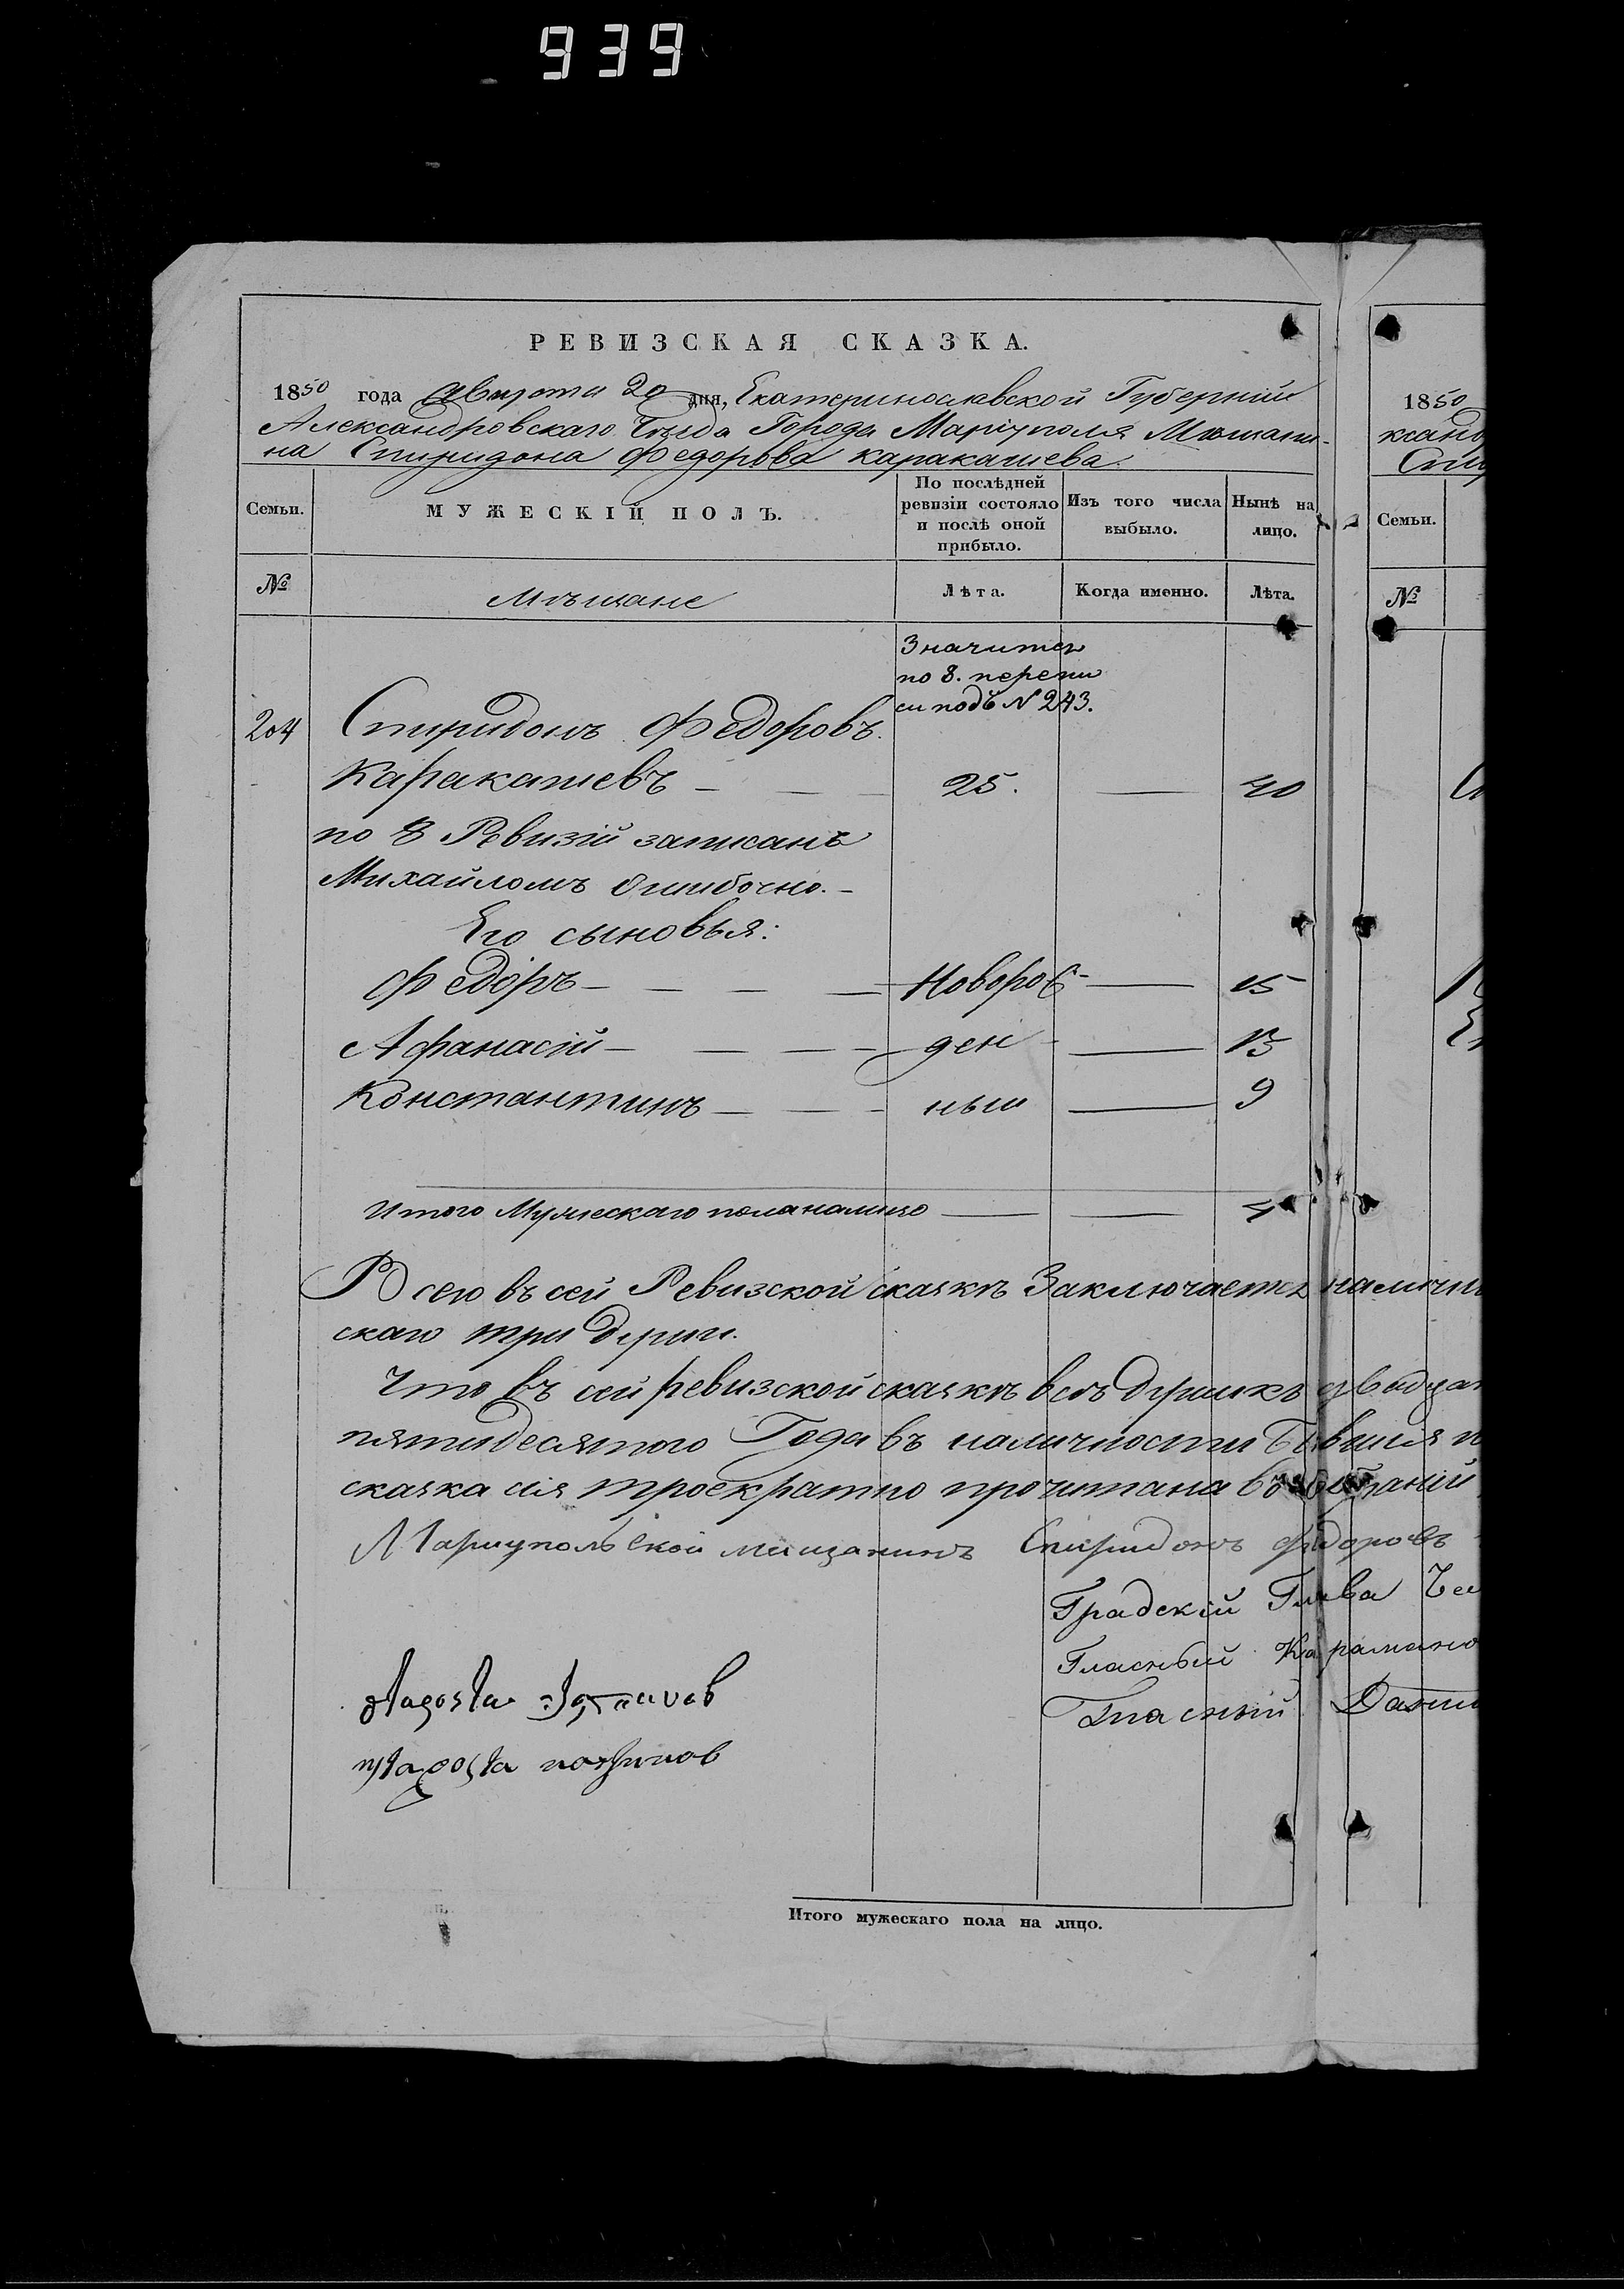 939
РЕВИЗСКАЯ СКАЗКА.
1850 года Августа 20 дня, Екатеринославской Губерніи
Александровскаго Уѣзда Города Маріуполя Мѣщани-
на Спиридона Федорова Каракашева.
Семьи.
МУЖЕСКІЙ ПОЛЪ.
По послѣдней ревизіи состояло и послѣ оной прибыло.
Изъ того числа выбыло.
Нынѣ на лицо.
№
Мѣщане
Лѣта.
Когда именно.
Лѣта.
Значится
по 8. перепи
си подъ N 243.
204 Спиридонъ Федоровъ
Каракашевъ — — — 25. — 40
по 8 Ревизій записанъ
Михайломъ Ошибочно. –
Его сыновья:
Федоръ — — — — Новорож- — 15
Афанасій — — — — ден- — 13
Константинъ — — — ныи — 9
Итого Мужескаго пола налицо — — 4
Всего въ сей Ревизской сказкѣ Заключается наличн
скаго три души.
Что въ сей ревизской сказкѣ всѣ души къ двадца
пятидесятого Года въ наличности Бывшія
сказка сія троекратно прочитана въ собраній
Мариупольской мещанинъ Спиридонъ Федоровъ
Градскій Глава
Гласный Карамано
Гласный
Итого мужескаго пола на лицо.
1850
Семьи.
№